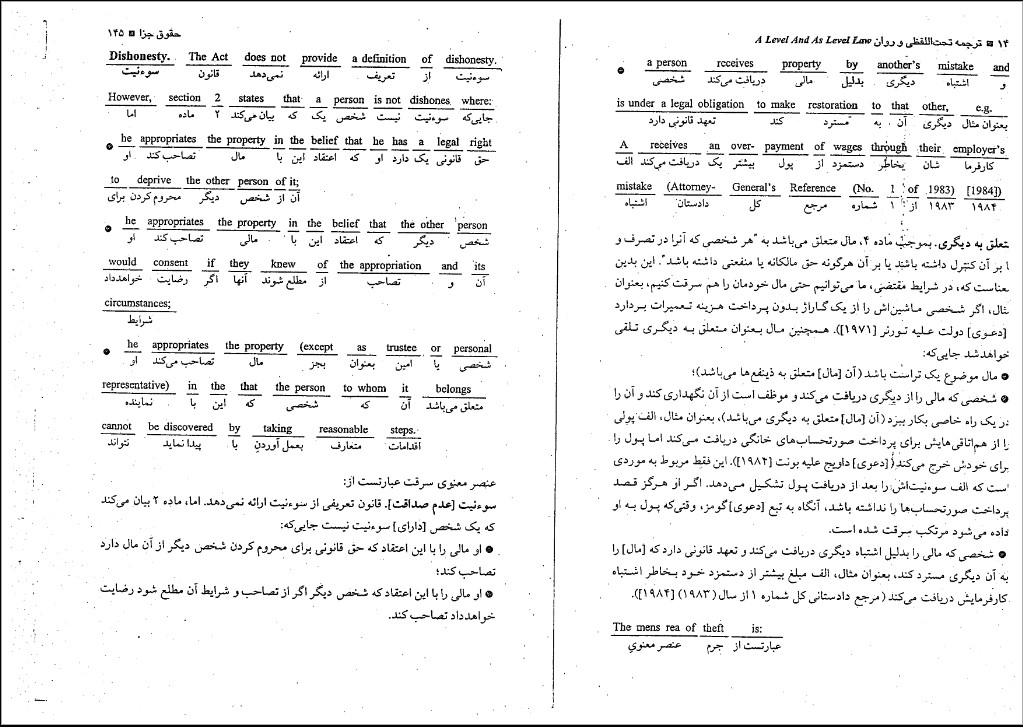 ۱۴ ■ ترجمه تحت‌اللفظی و روان A Level And As Level Law
a person receives property by another's mistake and
شخصی دریافت می‌کند مالی بدلیل دیگری اشتباه و
is under a legal obligation to make restoration to that other, e.g.
تعهد قانونی دارد کند مسترد به آن دیگری بعنوان مثال
A receives an over-payment of wages through their employer's
الف دریافت می‌کند یک بیشتر پول از دستمزد بخاطر شان کارفرما
mistake (Attorney-General's Reference (No. 1 of 1983) [1984])
اشتباه دادستان کل مرجع شماره ۱ از ۱۹۸۳ ۱۹۸۴
متعلق به دیگری. بموجب ماده ۴، مال متعلق می‌باشد به "هر شخصی که آنرا در تصرف و
یا بر آن کنترل داشته باشد یا بر آن هرگونه حق مالکانه یا منفعتی داشته باشد". این بدین
معناست که، در شرایط مقتضی، ما می‌توانیم حتی مال خودمان را هم سرقت کنیم، بعنوان
مثال، اگر شخصی ماشین‌اش را از یک گاراژ بدون پرداخت هزینه تعمیرات بردارد
[دعوی] دولت علیه تورنر [۱۹۷۱]). همچنین مال بعنوان متعلق به دیگری تلقی
خواهد شد جایی‌که:
● مال موضوع یک تراست باشد (آن [مال] متعلق به ذینفع‌ها می‌باشد)؛
● شخصی که مالی را از دیگری دریافت می‌کند و موظف است از آن نگهداری کند و آن را
در یک راه خاصی بکار ببرد (آن [مال] متعلق به دیگری می‌باشد)، بعنوان مثال، الف پولی
را از هم‌اتاقی‌هایش برای پرداخت صورتحساب‌های خانگی دریافت می‌کند اما پول را
برای خودش خرج می‌کند ([دعوی] داویج علیه بونت [۱۹۸۴]). این فقط مربوط به موردی
است که الف سوءنیت‌اش را بعد از دریافت پول تشکیل می‌دهد. اگر از هرگز قصد
پرداخت صورتحساب‌ها را نداشته باشد، آنگاه به تبع [دعوی] گومز، وقتی‌که پول به او
داده می‌شود مرتکب سرقت شده است.
● شخصی که مالی را بدلیل اشتباه دیگری دریافت می‌کند و تعهد قانونی دارد که [مال] را
به آن دیگری مسترد کند، بعنوان مثال، الف مبلغ بیشتر از دستمزد خود بخاطر اشتباه
کارفرمایش دریافت می‌کند (مرجع دادستانی کل شماره ۱ از سال (۱۹۸۳) [۱۹۸۴]).
The mens rea of theft is:
عنصر معنوی جرم عبارتست از
حقوق جزا ■ ۱۴۵
Dishonesty. The Act does not provide a definition of dishonesty.
سوءنیت قانون نمی‌دهد ارائه تعریف از سوءنیت
However, section 2 states that a person is not dishones where:
اما ماده ۲ بیان می‌کند که یک شخص نیست سوءنیت جایی‌که
● he appropriates the property in the belief that he has a legal right
او تصاحب کند مال با این اعتقاد که او دارد یک قانونی حق
to deprive the other person of it;
برای محروم کردن دیگر شخص از آن
● he appropriates the property in the belief that the other person
او تصاحب کند مالی با این اعتقاد که دیگر شخص
would consent if they knew of the appropriation and its
خواهدداد رضایت اگر آنها مطلع شوند از تصاحب و آن
circumstances;
شرایط
● he appropriates the property (except as trustee or personal
او تصاحب می‌کند مال بجز بعنوان امین یا شخصی
representative) in the that the person to whom it belongs
نماینده با این که شخصی که آن متعلق می‌باشد
cannot be discovered by taking reasonable steps.
نتواند پیدا نماید با بعمل آوردن متعارف اقدامات
عنصر معنوی سرقت عبارتست از:
سوءنیت [عدم صداقت]. قانون تعریفی از سوءنیت ارائه نمی‌دهد. اما، ماده ۲ بیان می‌کند
که یک شخص [دارای] سوءنیت نیست جایی‌که:
● او مالی را با این اعتقاد که حق قانونی برای محروم کردن شخص دیگر از آن مال دارد
تصاحب کند؛
● او مالی را با این اعتقاد که شخص دیگر اگر از تصاحب و شرایط آن مطلع شود رضایت
خواهدداد تصاحب کند.